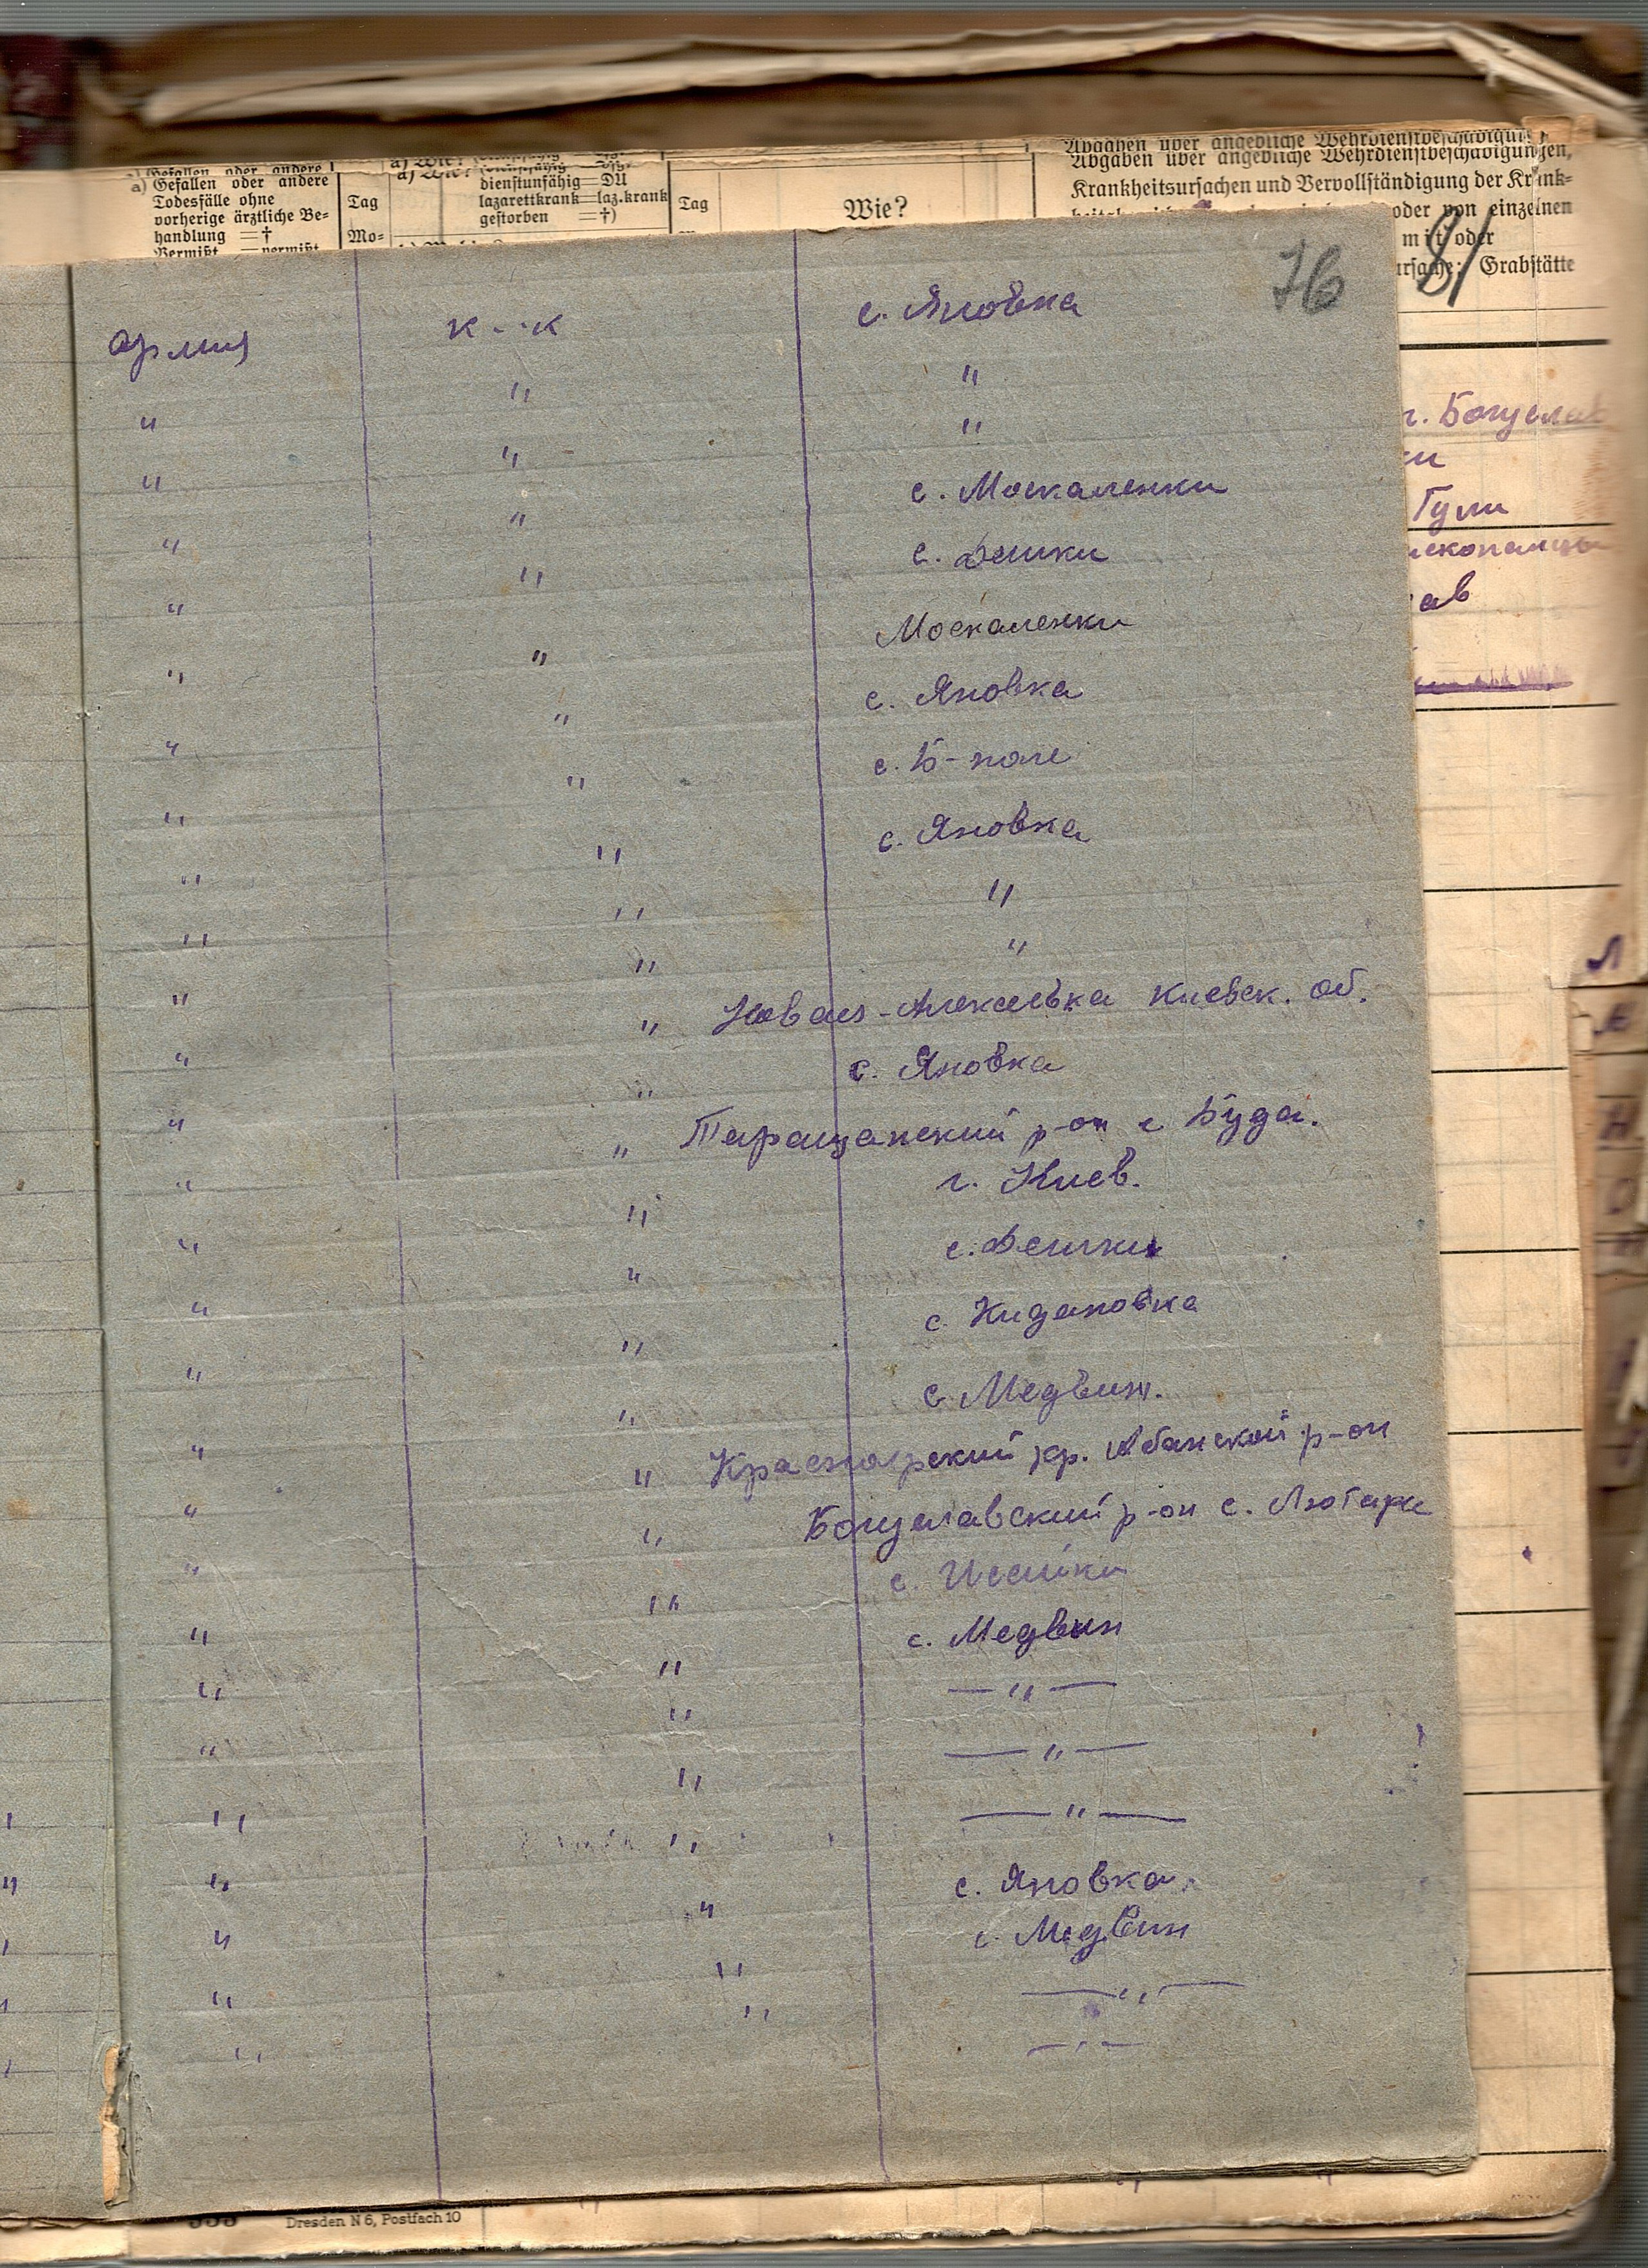 a) Gefallen oder andere
Todesfälle ohne
vorherige ärztliche Be-
handlung =†
Vermißt =vermißt
Tag
Mo-
dienstunfähig=DU
lazarettkrank=laz.krank
gestorben =†)
Tag
Wie?
Abgaben über angebliche Wehrdienstbeschädigungen,
Krankheitsursachen und Vervollständigung der Krank-
oder von einzelnen
mit oder
Grabstätte
81
76
армия к--к с. Яновка
" " "
" " "
" " с. Москаленки
" " с. Дешки
" " Москаленки
" " с. Яновка
" " с. Б-поле
" " с. Яновка
" " "
" " "
" " Новая-Алексеевка Киевск. об.
" " с. Яновка
" " Таращанский р-он с Буда.
" " г. Киев.
" " с. Дешки
" " с. Кидановка
" " с. Медвин.
" " Красноярский кр. Абанской р-он
" " Богуславский р-он с. Лютари
" " с. Исайки
" " с. Медвин
" " — " —
" " — " —
" " — " —
" " с. Яновка
" " с. Медвин
" " — " —
" — " —
г. Богуслав
ки
Гули
ав
Dresden N 6, Postfach 10